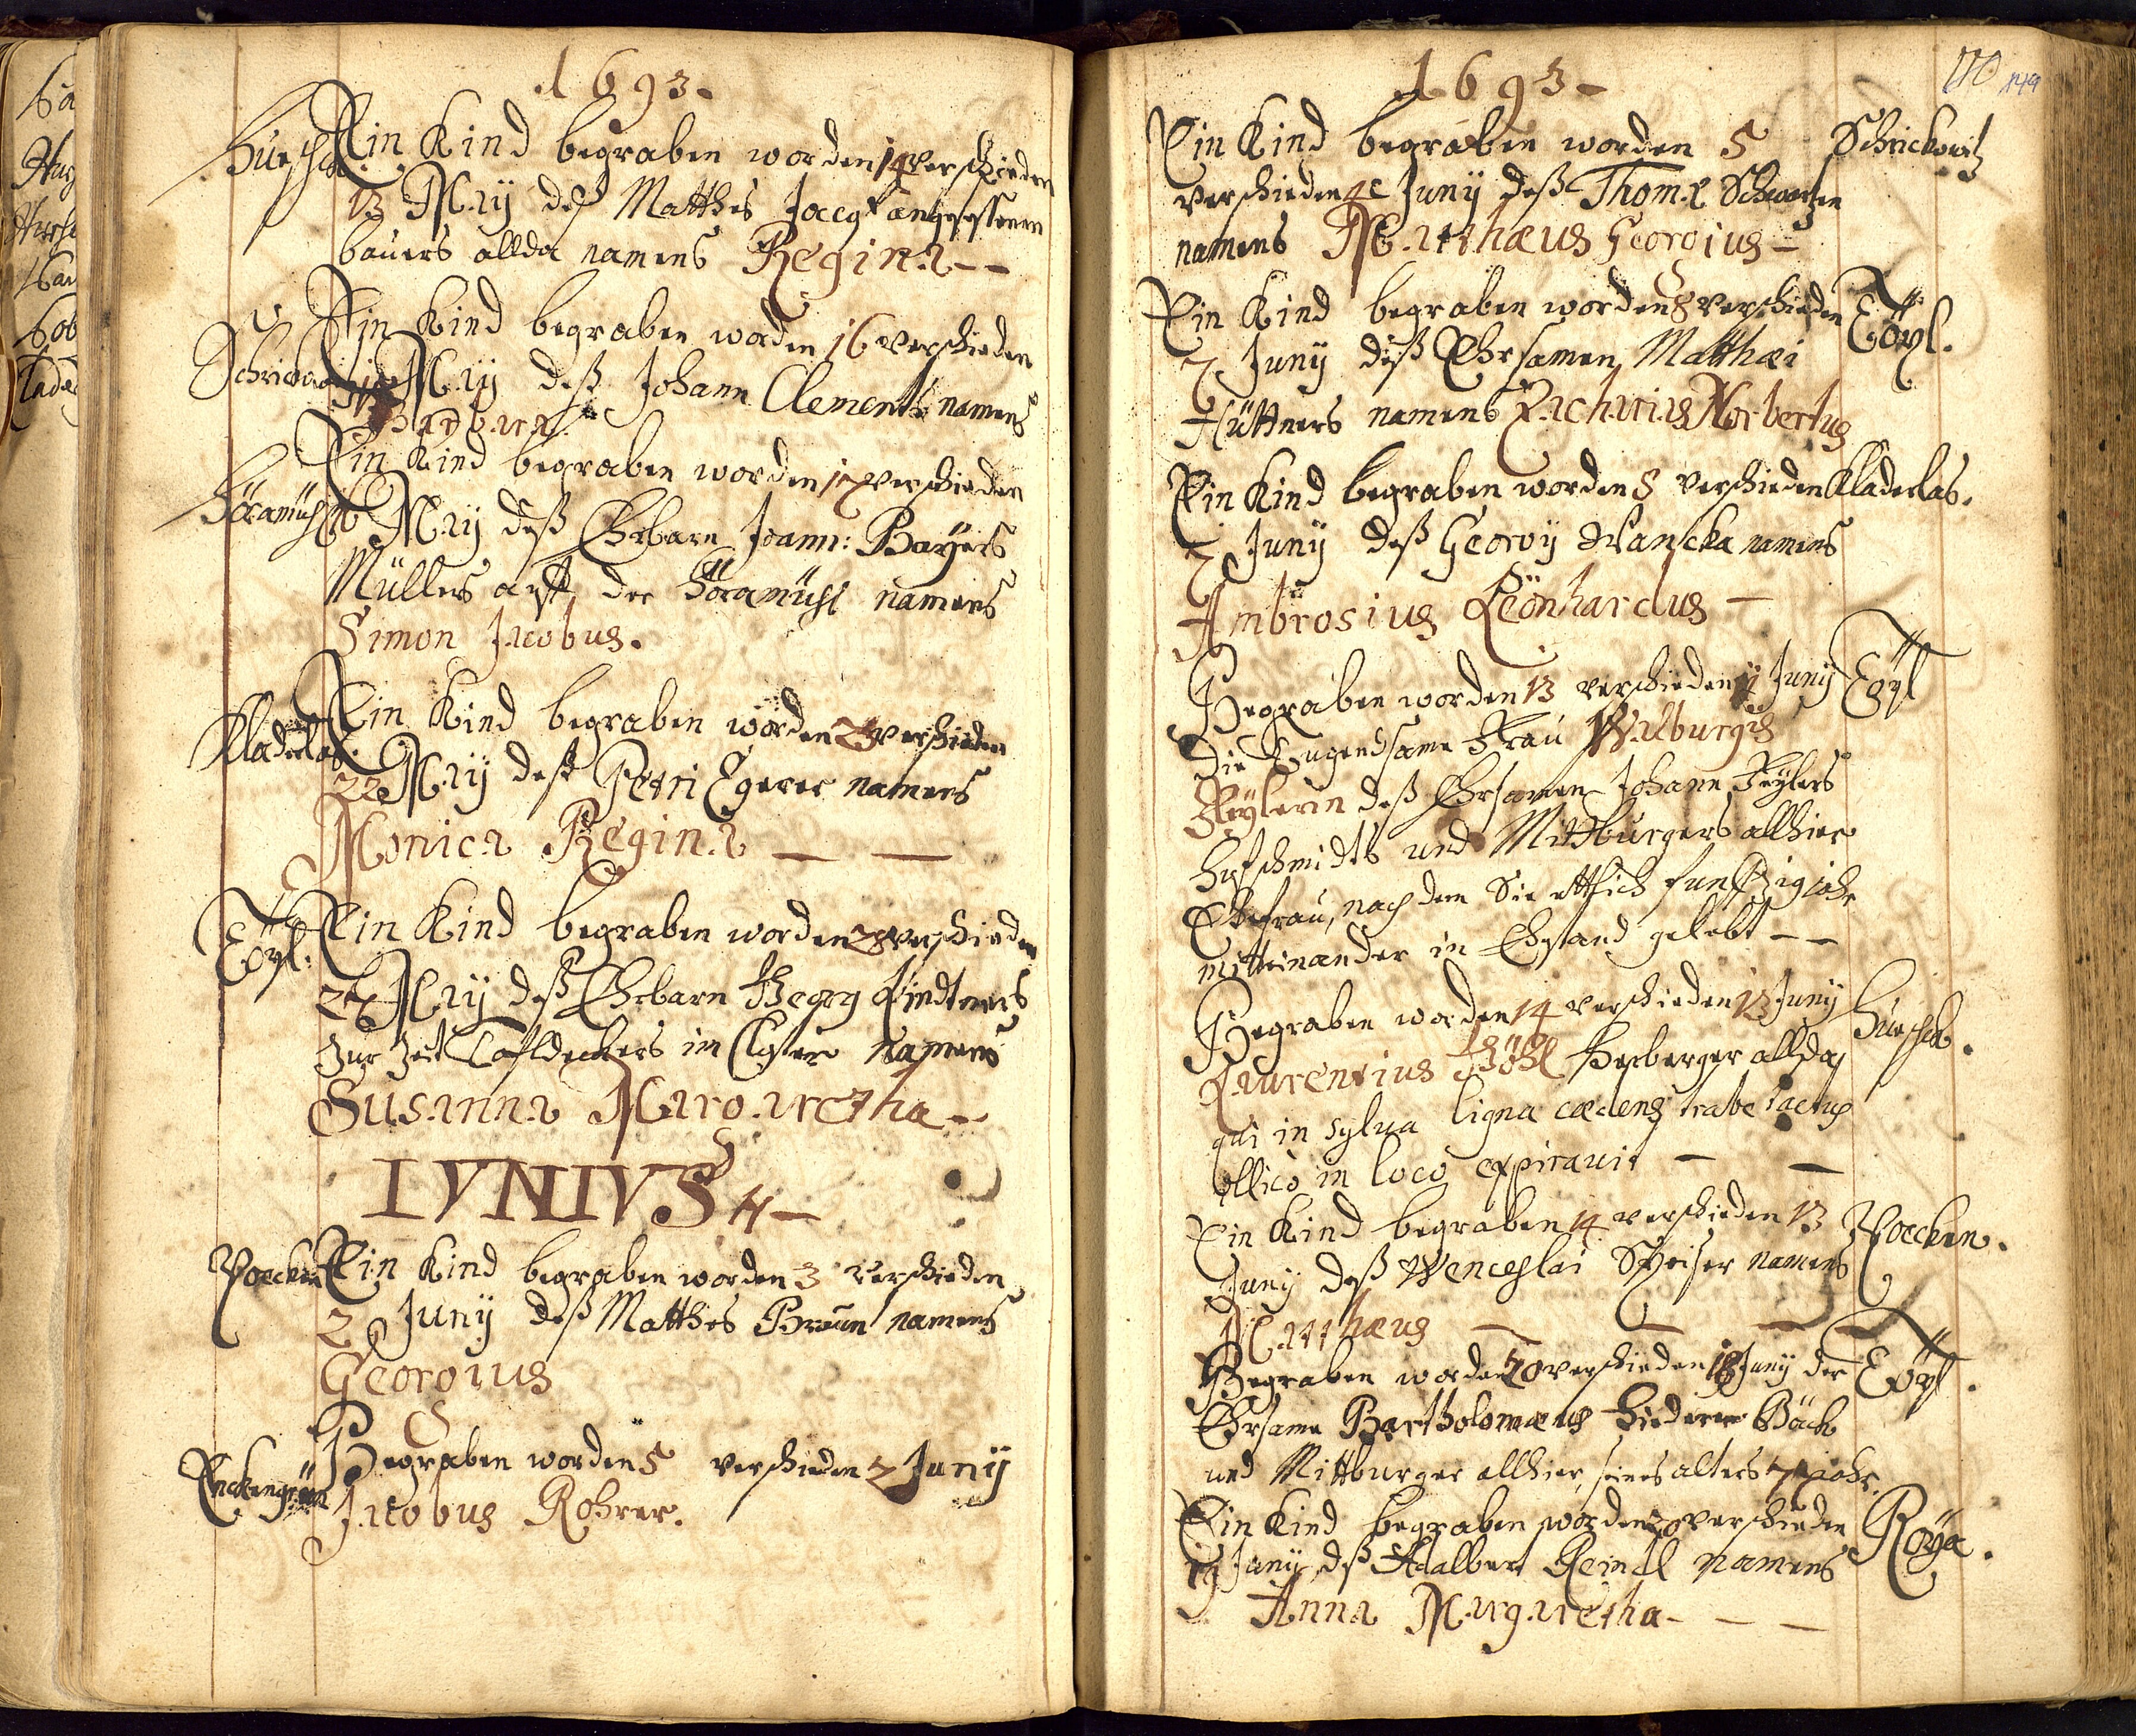 1693.
Hurschk. Ein Kind begraben worden 14 verschieden
13 May deß Matthes Jacg angesessenen
bauers allda namens Regina
Ein Kind begraben worden 16 verschieden
May deß Johann Clements namens
Barbara
Ein Kind begraben worden 17 verschieden
May deß Ehrbarn Joann: Bayers
Müllers auff der Höramühl namens
Simon Jacobus.
Kladerlas. Ein Kind begraben worden 23 verschieden
22 May deß Petri Egerer namens
Monica Regina
Töpl. Ein Kind begraben worden 28 verschieden
27 May deß Ehrbarn Georg Lindtners
zur Zeit Tafldeckers im Closter namens
Susanna Margaretha
IVNIVS
Poecken Ein Kind begraben worden 3 verschieden
2 Juny deß Matthes Braun namens
Georgius
Enckengrün Begraben worden 5 verschieden 2 Juny
Jacobus Rohrer.
170 149
1693
Ein Kind begraben worden 5 Schrickowitz
verschieden 4 Juny deß Thomæ Schwartzen
namens Matthæus Georgius
Ein Kind begraben worden 8 verschieden Töpl.
7 Juny deß Ehrsamen Matthæi
Hüttners namens Zacharias Norbertus
Ein Kind begraben worden 8 verschieden Kladerlas.
7 Juny deß Georgy Wanscka namens
Ambrosius Leönhardus
Begraben worden 13 verschieden 11 Juny Töpl
die Tugendsame Frau Walburgis
Zeylerin deß Ehrsamen Johann Zeylers
Hufschmidts und Mittburgers allhier
Ehefrau, nach dem Sie ettlich funffzig jahr
mitteinander in Ehstand gelebt
Begraben worden 14 verschieden 13 Juny Hurschk.
Laurentius Böhl Herberger allda
qui in sylva ligna cædens trabe iactus
illico in loco expiravit
Ein Kind begraben 14 verschieden 13 Poecken.
Juny deß Wenceslai Speiser namens
Matthæus
Begraben worden 20 verschieden 18 Juny der Töpl.
Ehrsame Bartholomæus Hiederer Böck
und Mittburger allhier, seines alters 77 jahr.
Ein Kind begraben worden 20 verschieden Roya.
19 Juny deß Adalbert Reindl namens
Anna Margaretha